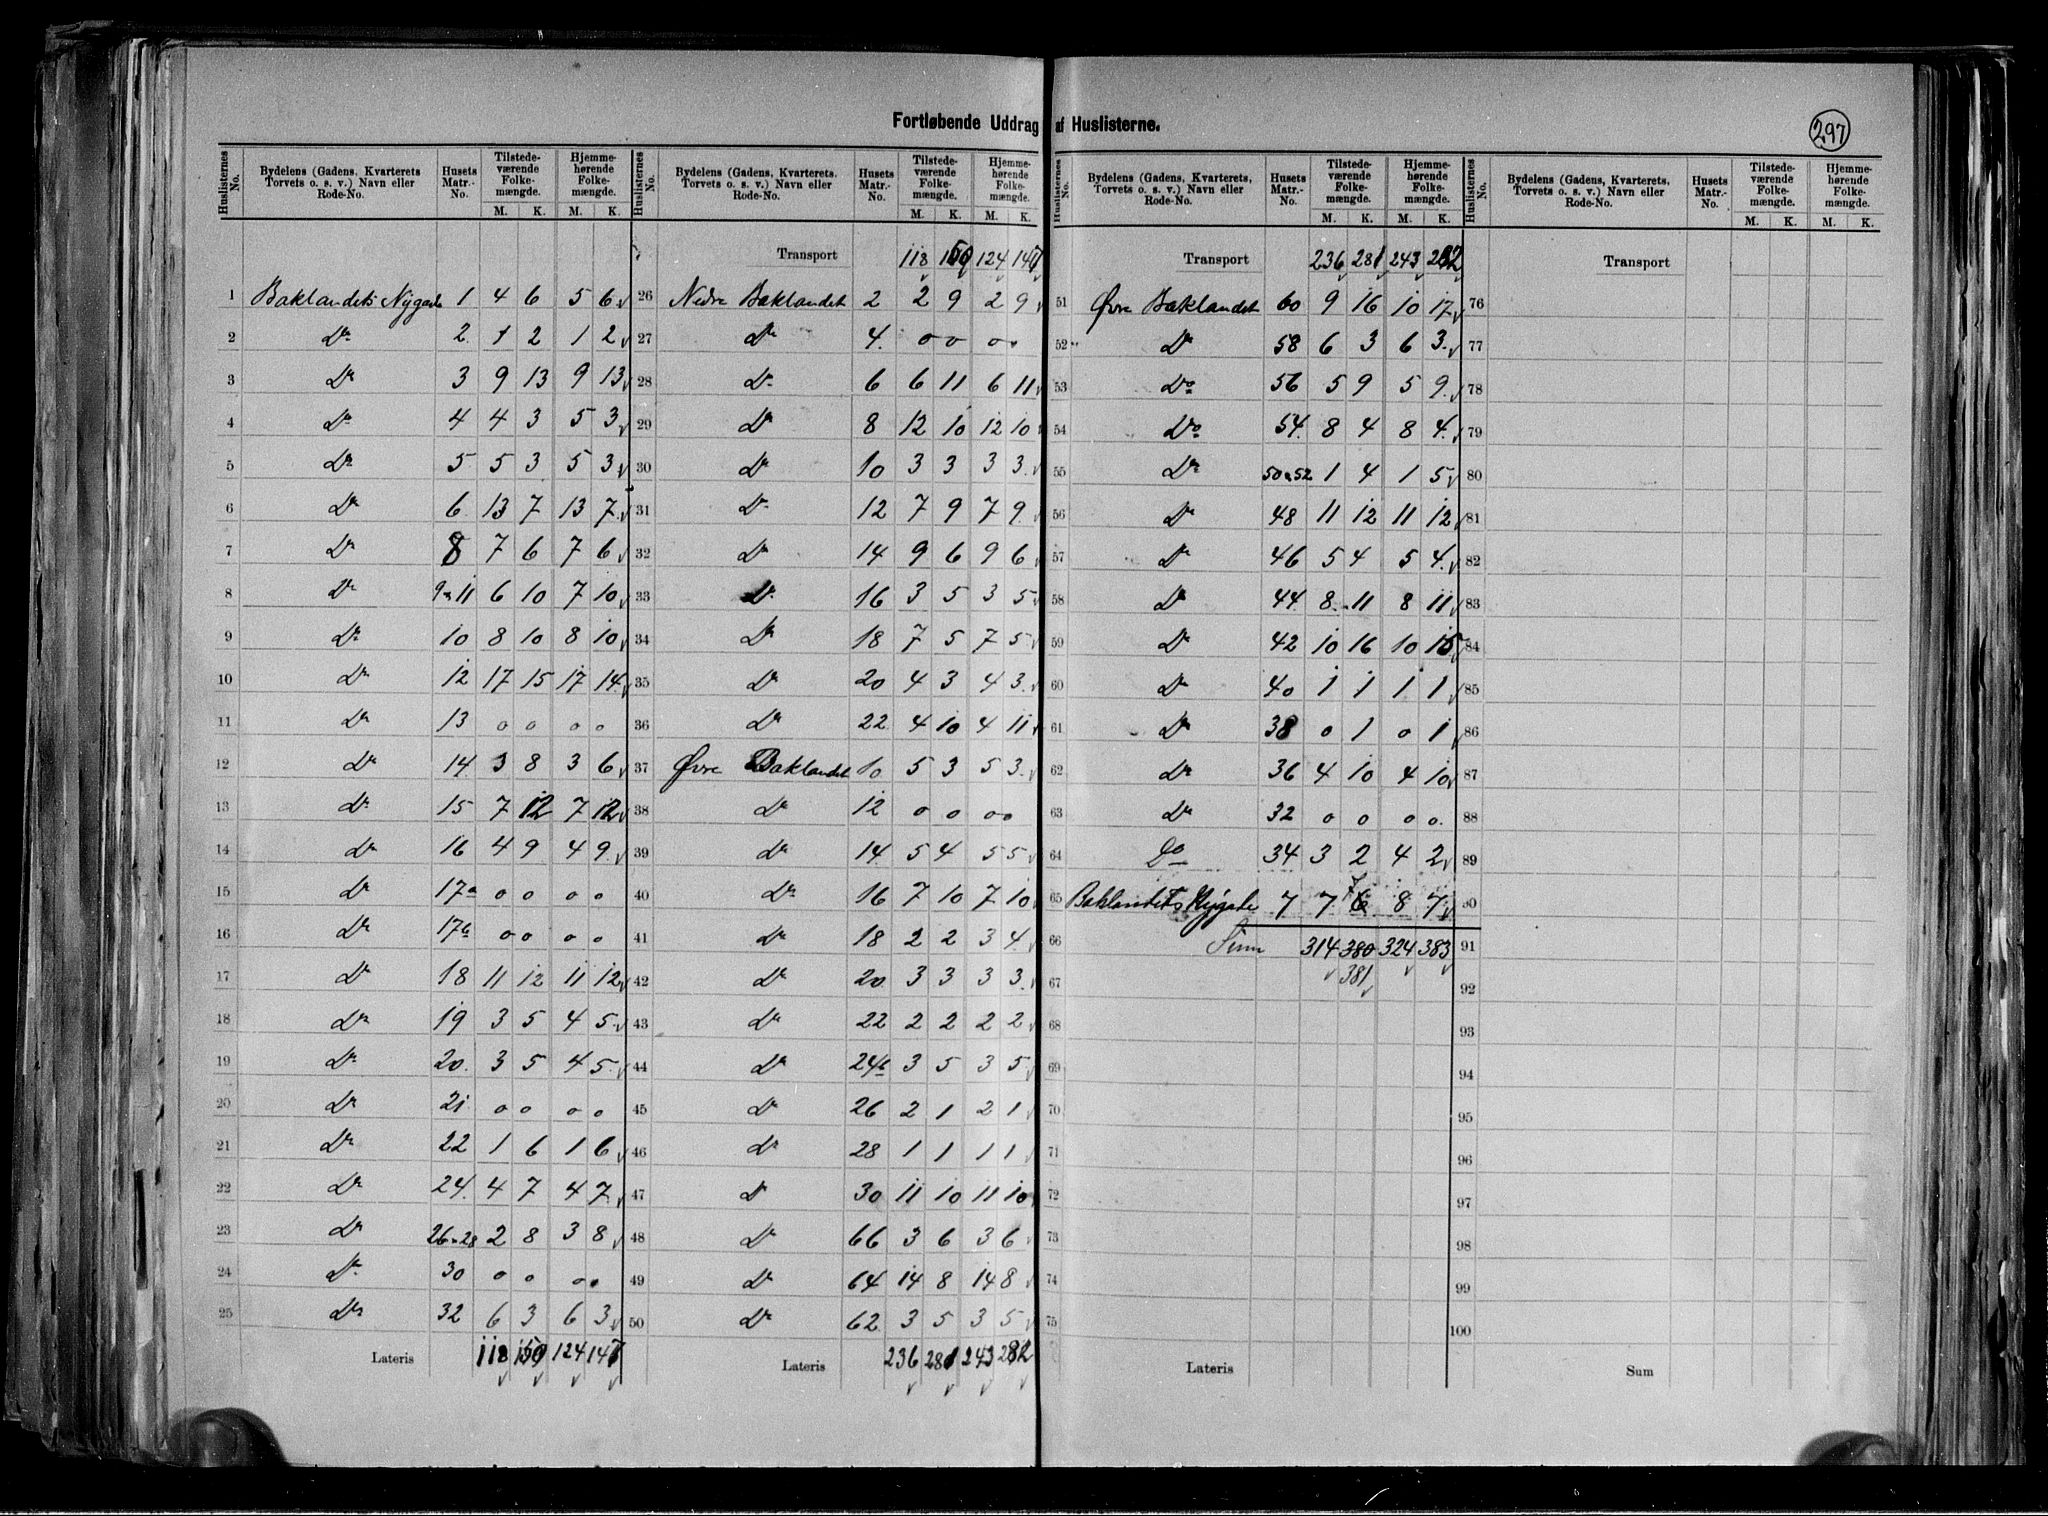 297
Fortløbende Uddrag af Huslisterne.
Huslisternes No. | Bydelens (Gadens, Kvarterets, Torvets o. s. v.) Navn eller Rode-No. | Husets Matr.-No. | Tilstedeværende Folkemængde. M. K. | Hjemmehørende Folkemængde. M. K.
1 Baklandets Nygade 1 4 6 5 6
2 Do 2 1 2 1 2
3 Do 3 9 13 9 13
4 Do 4 4 3 5 3
5 Do 5 5 3 5 3
6 Do 6 13 7 13 7
7 Do 8 7 6 7 6
8 Do 9 & 11 6 10 7 10
9 Do 10 8 10 8 10
10 Do 12 17 15 17 14
11 Do 13 0 0 0 0
12 Do 14 3 8 3 6
13 Do 15 7 12 7 12
14 Do 16 4 9 4 9
15 Do 17a 0 0 0 0
16 Do 17b 0 0 0 0
17 Do 18 11 12 11 12
18 Do 19 3 5 4 5
19 Do 20 3 5 4 5
20 Do 21 0 0 0 0
21 Do 22 1 6 1 6
22 Do 24 4 7 4 7
23 Do 26-28 2 8 3 8
24 Do 30 0 0 0 0
25 Do 32 6 3 6 3
Lateris 118 150 124 147
Huslisternes No. | Bydelens (Gadens, Kvarterets Torvets o. s. v.) Navn eller Rode-No. | Husets Matr.-No. | Tilstedeværende Folkemængde. M. K. | Hjemmehørende Folkemængde. M. K.
Transport 118 150 124 147
26 Nedre Baklandet 2 2 9 2 9
27 Do 4 0 0 0 0
28 Do 6 6 11 6 11
29 Do 8 12 10 12 10
30 Do 10 3 3 3 3
31 Do 12 7 9 7 9
32 Do 14 9 6 9 6
33 Do 16 3 5 3 5
34 Do 18 7 5 7 5
35 Do 20 4 3 4 3
36 Do 22 4 10 4 11
37 Øvre Baklandet 10 5 3 5 3
38 Do 12 0 0 0 0
39 Do 14 5 4 5 5
40 Do 16 7 10 7 10
41 Do 18 2 2 3 4
42 Do 20 3 3 3 3
43 Do 22 2 2 2 2
44 Do 24b 3 5 3 5
45 Do 26 2 1 2 1
46 Do 28 1 1 1 1
47 Do 30 11 10 11 10
48 Do 66 3 6 3 6
49 Do 64 14 8 14 8
50 Do 62 3 5 3 5
Lateris 236 281 243 282
Huslisternes No. | Bydelens (Gadens, Kvarterets, Torvets o. s. v.) Navn eller Rode-No. | Husets Matr.-No. | Tilstedeværende Folkemængde. M. K. | Hjemmehørende Folkemængde. M. K.
Transport 236 281 243 282
51 Øvre Baklandet 60 9 16 10 17
52 Do 58 6 3 6 3
53 Do 56 5 9 5 9
54 Do 54 8 4 8 4
55 Do 50 & 52 1 4 1 5
56 Do 48 11 12 11 12
57 Do 46 5 4 5 4
58 Do 44 8 11 8 11
59 Do 42 10 16 10 15
60 Do 40 1 1 1 1
61 Do 38 0 1 0 1
62 Do 36 4 10 4 10
63 Do 32 0 0 0 0
64 Do 34 3 2 4 2
65 Baklandets Nygade 7 7 6 7 8 7
66 Sum 314 380 324 383
67 381
68
69
70
71
72
73
74
75
Lateris
Huslisternes No. | Bydelens (Gadens, Kvarterets, Torvets o. s. v.) Navn eller Rode-No. | Husets Matr.-No. | Tilstedeværende Folkemængde. M. K. | Hjemmehørende Folkemængde. M. K.
Transport
76
77
78
79
80
81
82
83
84
85
86
87
88
89
90
91
92
93
94
95
96
97
98
99
100
Sum